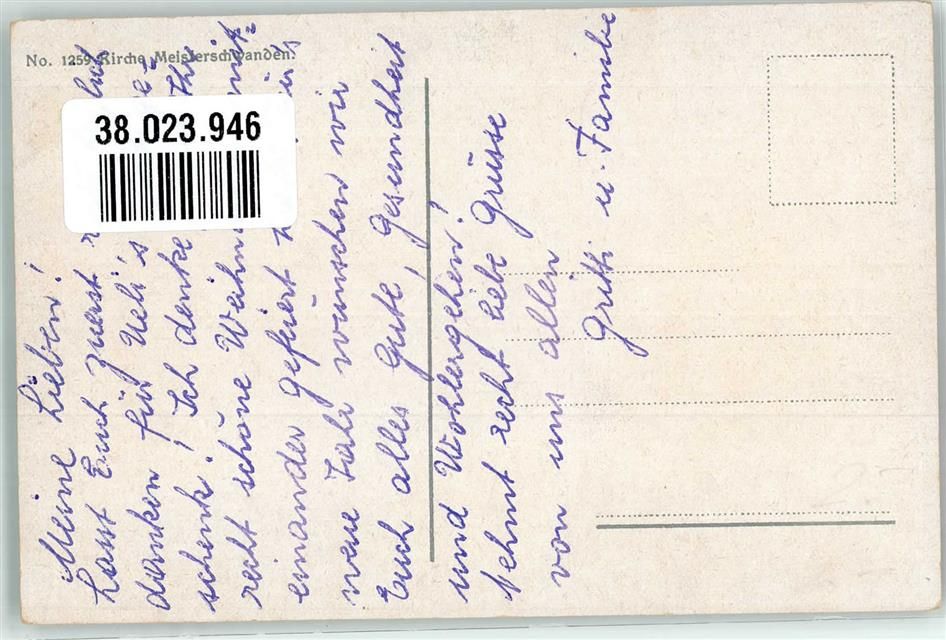 No. 1259 Kirche Meisterschwanden.
38.023.946
Meine Lieben!
Lasst Euch zuerst
danken für Ueli's
schenk! Ich denke
recht schöne Weihn
einander gefeiert
neue Jahr wünschen wir
Euch alles Gute, Gesundheit
und Wohlergehen!
Nehmt recht liebe Grüsse
von uns allen
Gritti u. Familie